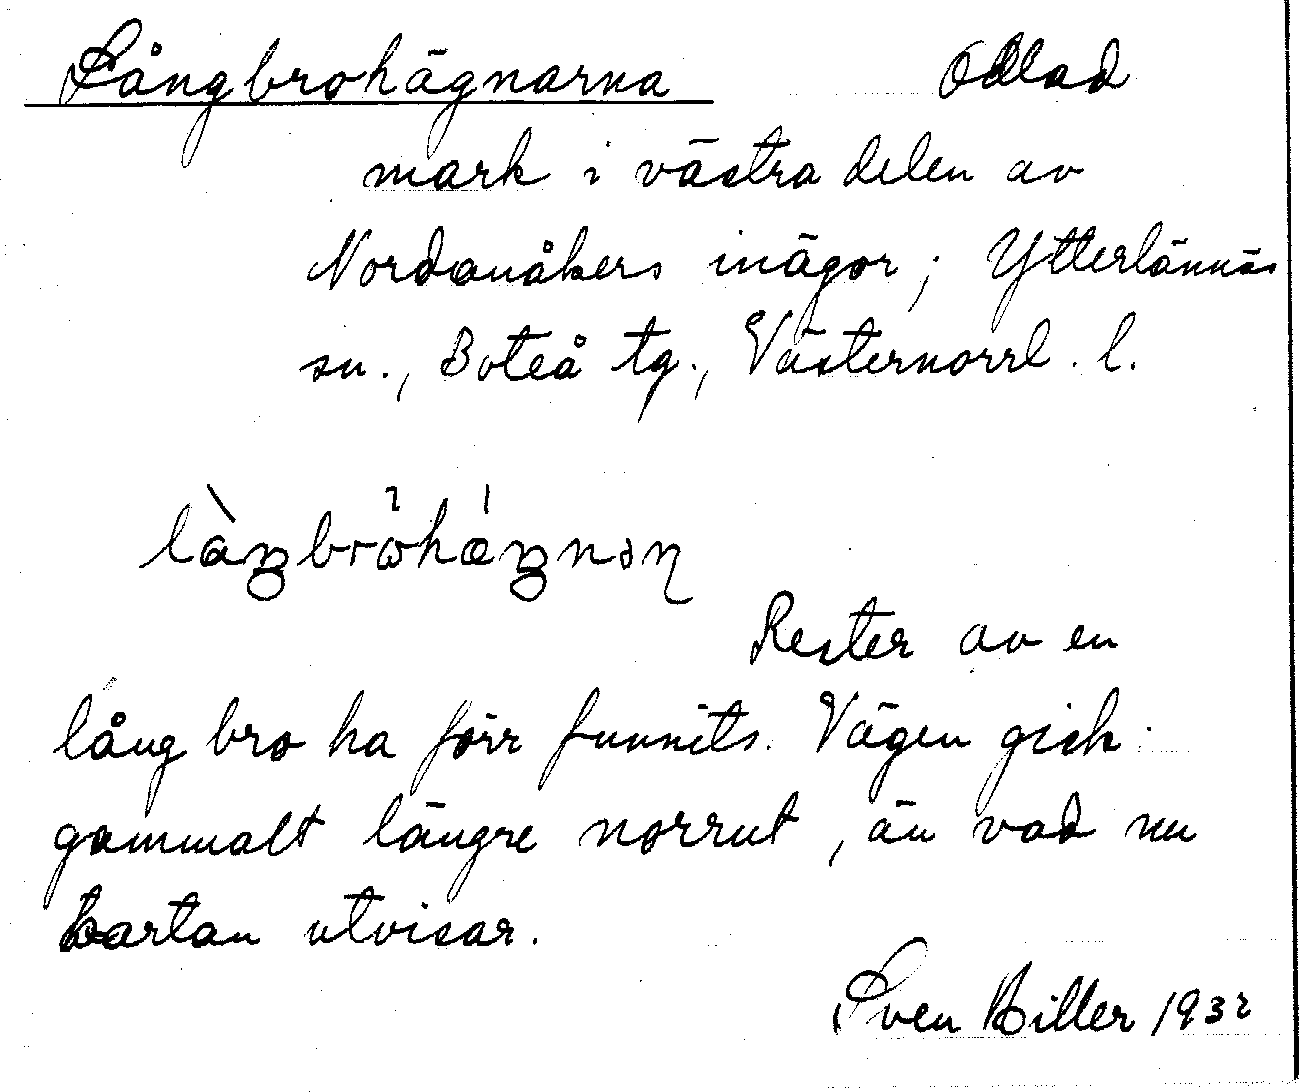 Långbrohägnarna Odlad
mark i västra delen av
Nordanåkers inägor; Ytterlännäs
sn., Boteå tg., Västernorrl. l.
Rester av en
lång bro ha förr funnits. Vägen gick
gammalt längre norrut, än vad nu
kartan utvisar.
Sven Biller 1932